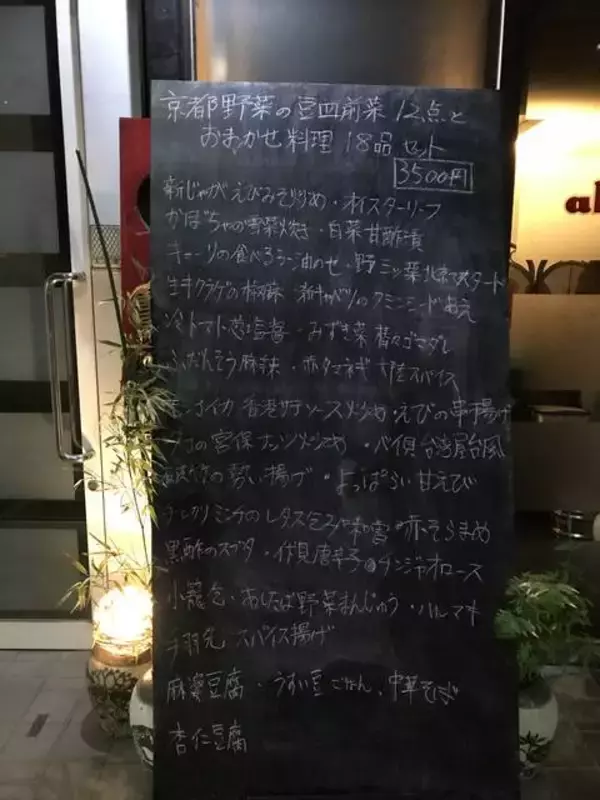 京都野菜の豆皿前菜 12点と
おまかせ料理 18品 セット
3500円
新じゃがえびみそ炒め・オイスターリーフ
かぼちゃの雪菜焼き・白菜甘酢漬
キューリの食べるラー油のせ・野ミツ菜北京マスタード
生キクラゲの・春キャベツのクミンシードあえ
冷トマト葱塩・みずき菜 ゴマダレ
ふだんそう麻辣・赤タマネギ スパイス
イカ 香港ソース炒め・えびの串揚げ
の宮保ナッツ炒め・バイ貝台湾屋台風
の 揚げ・よっぱらい甘えび
ミンチのレタス包み・赤そらまめ
黒酢のスブタ・伏見唐辛子のチンジャオロース
小籠包・あしたば野菜まんじゅう・ハルマキ
手羽先 スパイス揚げ
麻婆豆腐・うすい豆ごはん、中華そば
杏仁豆腐